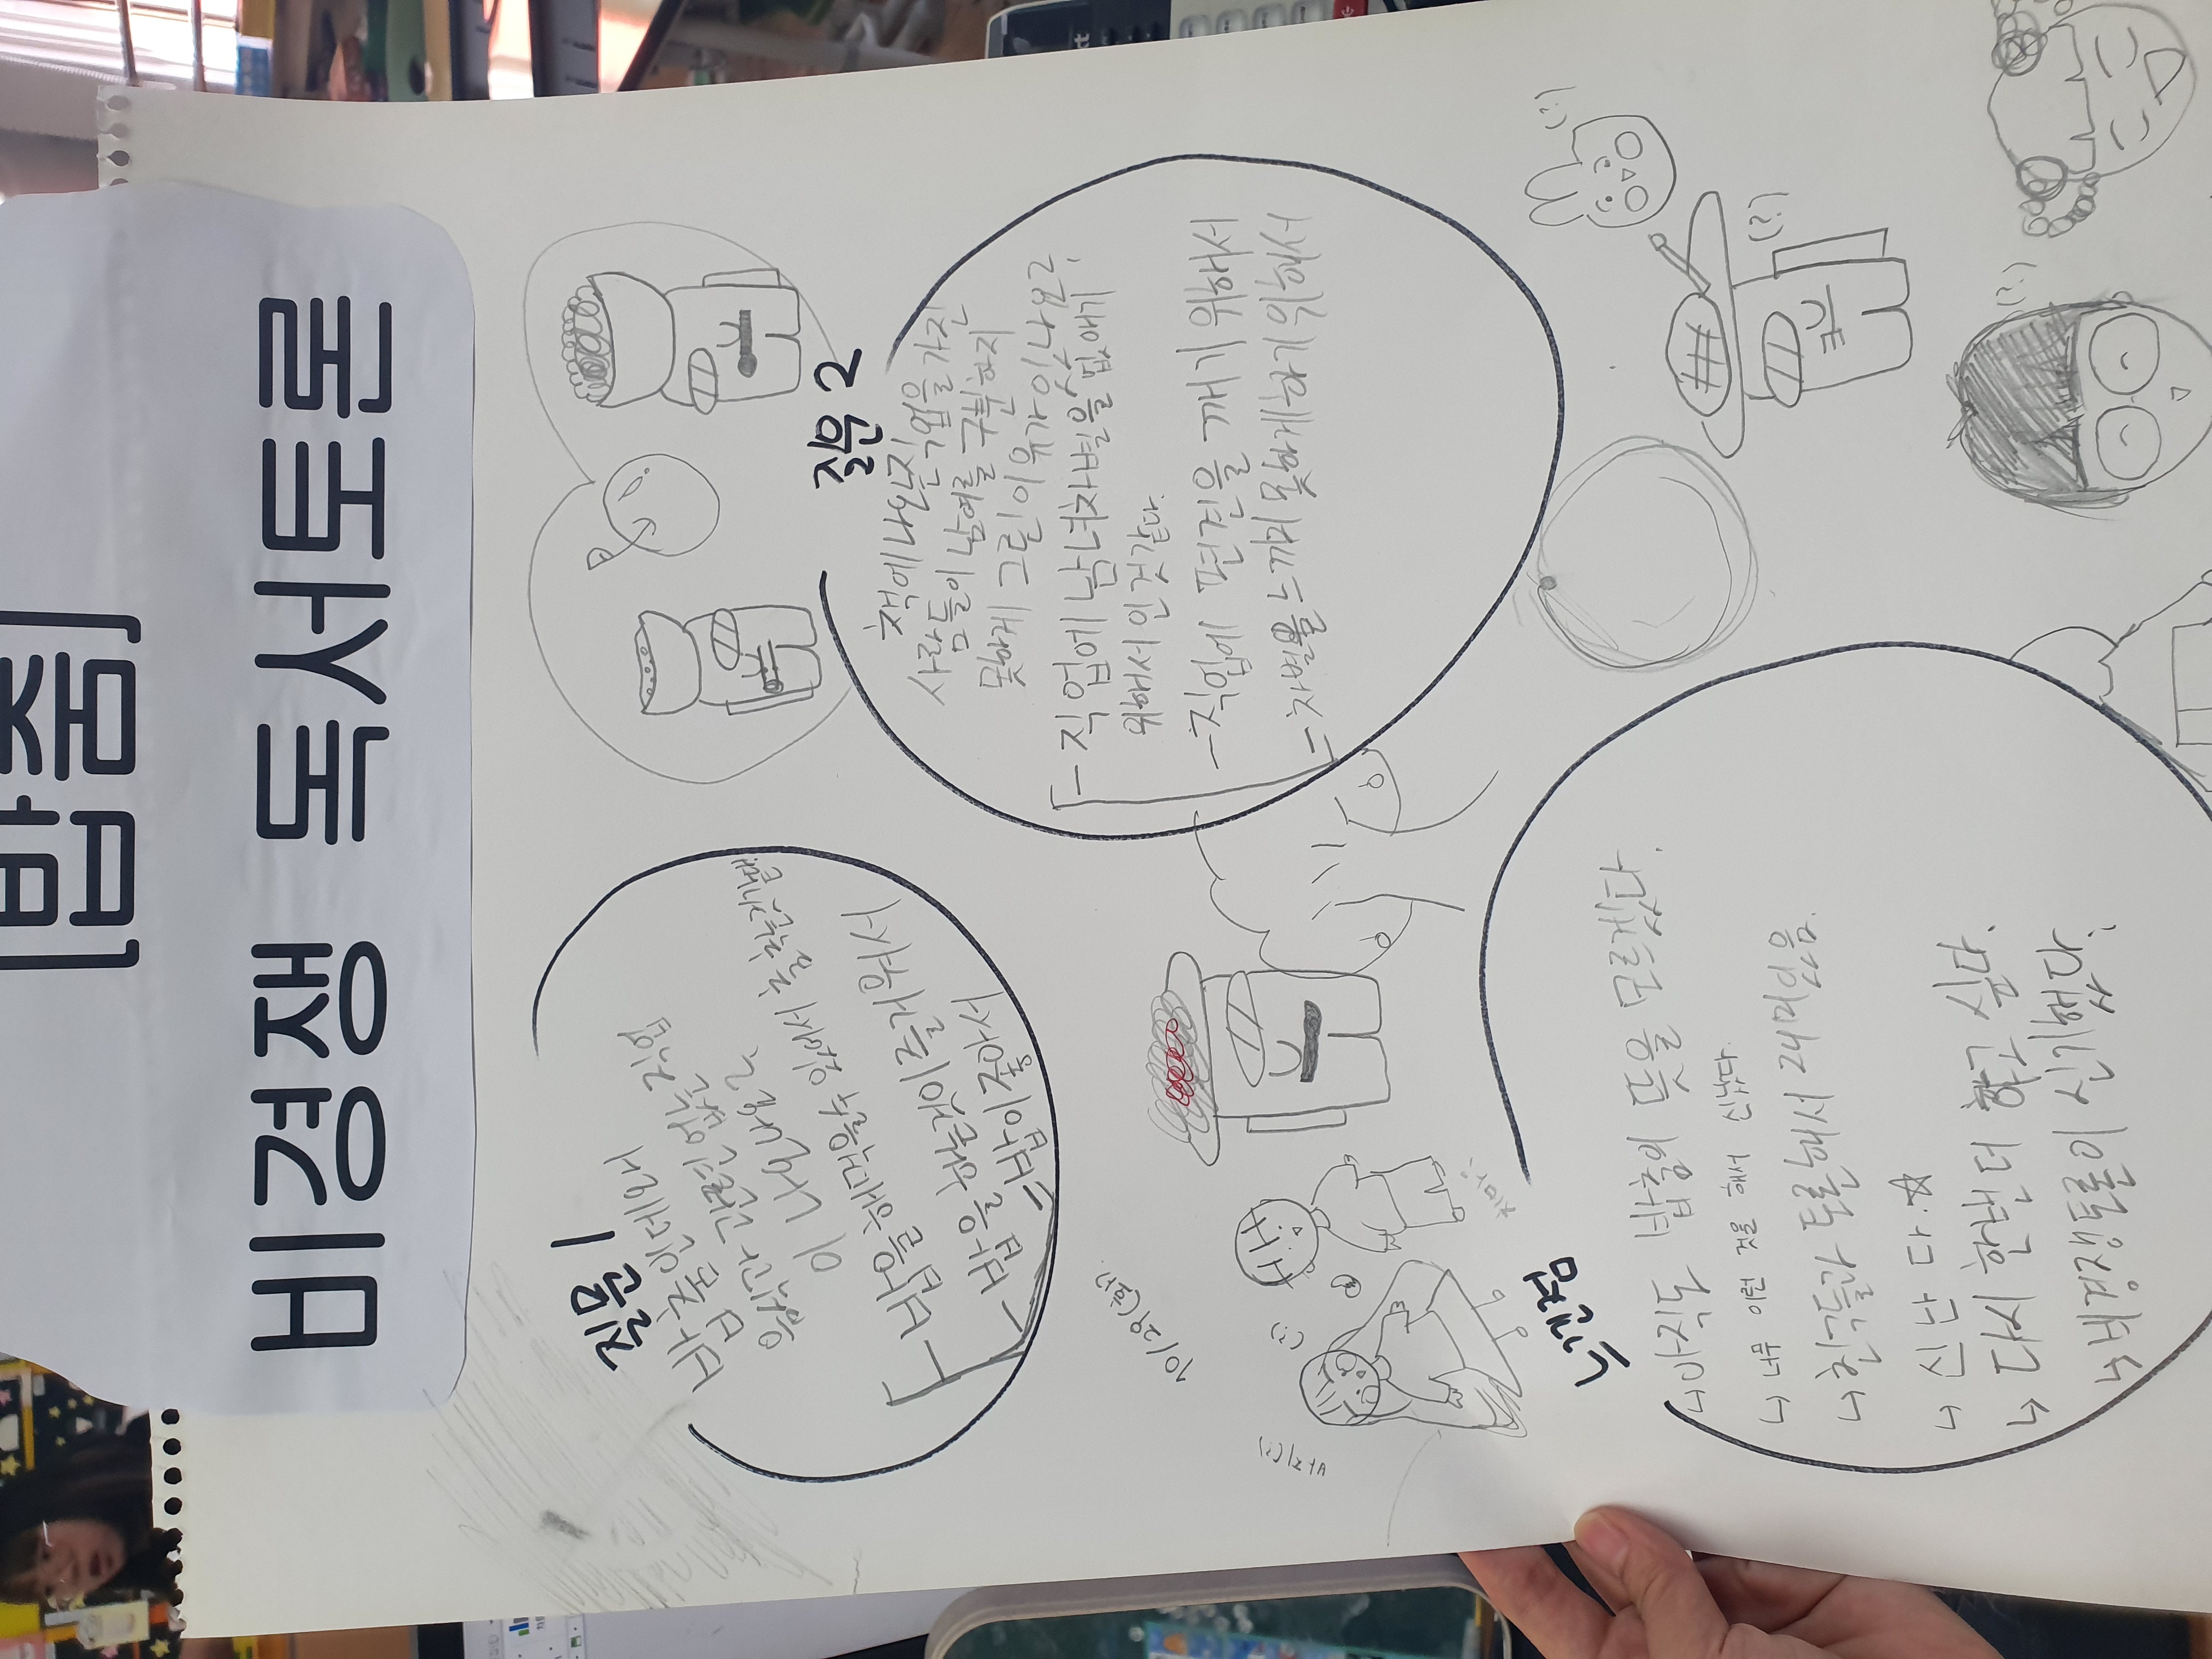 [밥춤]
비경쟁 독서토론
질문 1
밥춤인데 왜
음식과 관련 없는 직업
이 나오나요?
- 밥을 해먹을수 있어서 춤 추는것 같다.
- 밥을 하는것이 즐거워서
= 밥이 좋아서
질문 2
책에 나오는 직업을 가진
사람들이 남여를 구분하지
못하게 그린 이유가 있나요?
- 직업에 남녀차별을 없애기
위해서 인 것 같다.
- 직업에 편견을 깨기 위해서
- 차별을 느끼지 못하게 하기 위해서
10/29(화).
바지(?)
(?)
치마?
느낀점
↳ 아직도 밥춤의 뜻을 모르겠다.
↳ 너무 이런 것을 해서 신났다.
↳ 친구들과 토론해서 재미있음.
↳ 신난다.☆
↳ 다시 한번 더 하고 싶다.
↳ 비경쟁토론이 신기했다.
(?)
(?)
(?)